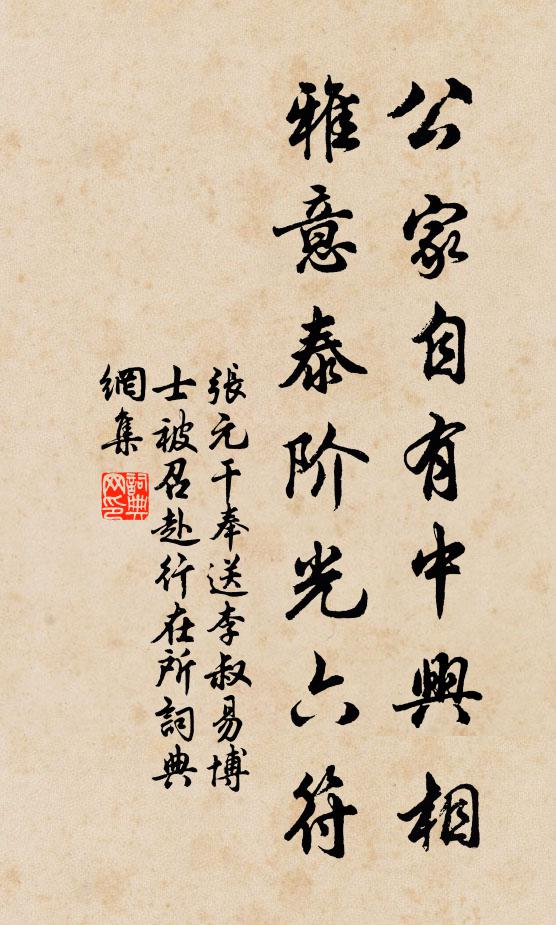 公家自有中興相
雅意泰阶光六符
張元干奉送李叔易博
士被召赴行在所詞典
網集
詞典
网印